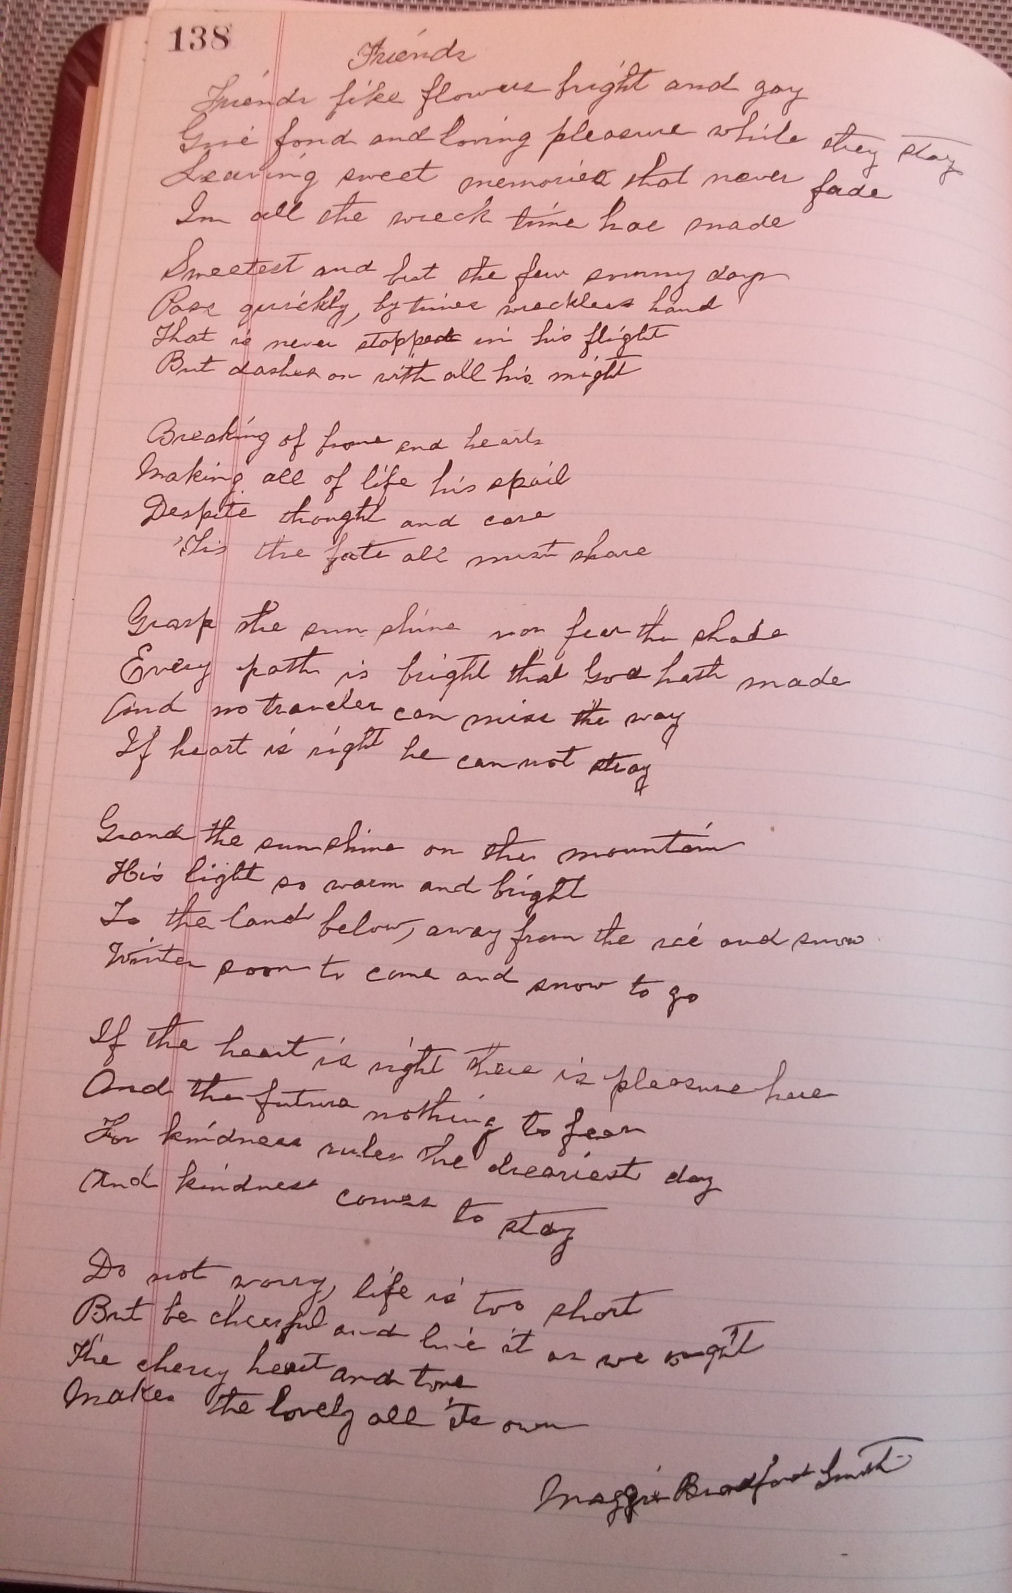 138
Friends
Friends like flowers bright and gay
Give fond and loving pleasure while they stay
Leaving sweet memories that never fade
In all the wreck time has made
Sweetest and but the few sunny days
Pass quickly, by times wreckless hand
That is never stopped in his flight
But dashes on with all his might
Breaking of home and hearts
Making all of life his spoil
Despite thought and care
'Tis the fate all must share
Grasp the sunshine nor fear the shade
Every path is bright that God hath made
And no traveler can miss the way
If heart is right he can not stray
Grand the sunshine on the mountain
His light so warm and bright
To the land below, away from the ice and snow
Winter soon to come and snow to go
If the heart is right there is pleasure here
And the future nothing to fear
For kindness rules the dreariest day
And kindness comes to stay
Do not worry, life is too short
But be cheerful and live it as we ought
The cherry heart and tone
Makes the lovely all its own
Maggie Bradford Smith